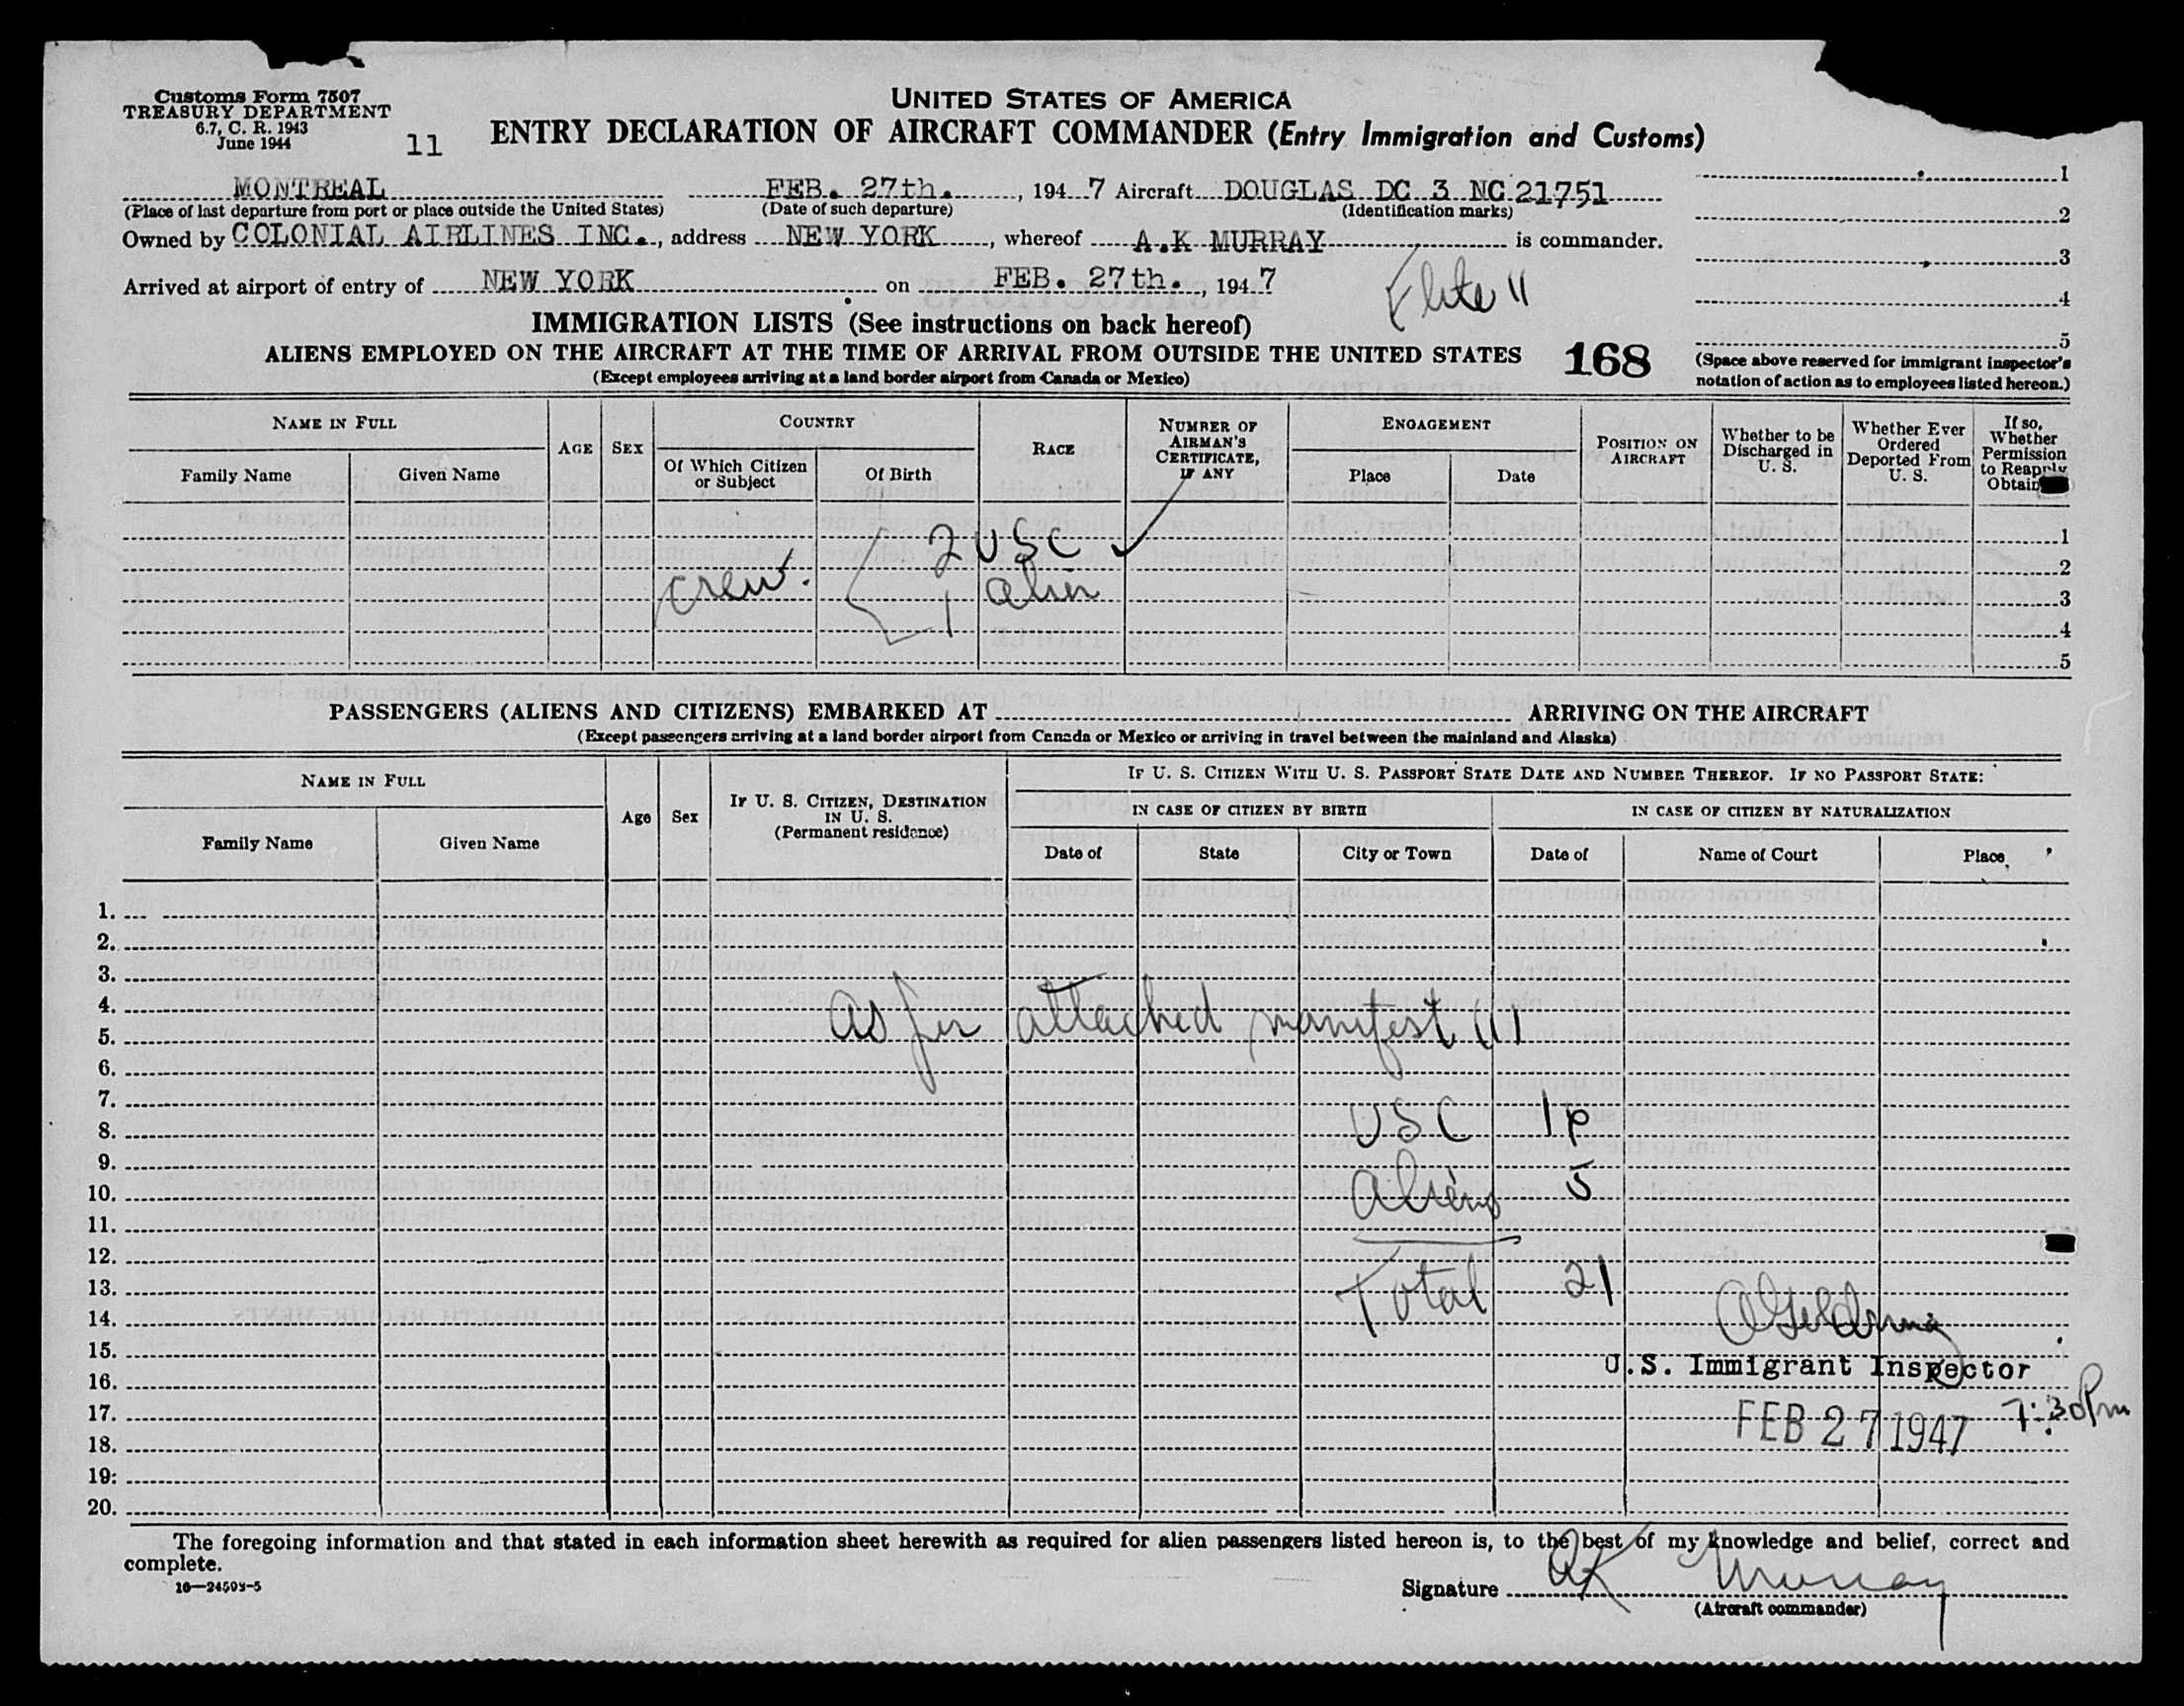 Customs Form 7507
TREASURY DEPARTMENT
6.7, C. R. 1943
June 1944
11
UNITED STATES OF AMERICA
ENTRY DECLARATION OF AIRCRAFT COMMANDER (Entry Immigration and Customs)
MONTREAL FEB. 27th. , 194 7 Aircraft DOUGLAS DC 3 NC 21751
(Place of last departure from port or place outside the United States) (Date of such departure) (Identification marks)
Owned by COLONIAL AIRLINES INC. , address NEW YORK , whereof A.K MURRAY is commander.
Arrived at airport of entry of NEW YORK on FEB. 27th. , 194 7
11
1
2
3
4
5
(Space above reserved for immigrant inspector's
notation of action as to employees listed hereon.)
IMMIGRATION LISTS (See instructions on back hereof)
ALIENS EMPLOYED ON THE AIRCRAFT AT THE TIME OF ARRIVAL FROM OUTSIDE THE UNITED STATES 168
(Except employees arriving at a land border airport from Canada or Mexico)
NAME IN FULL
Family Name Given Name
AGE SEX
COUNTRY
Of Which Citizen
or Subject
Of Birth
RACE
NUMBER OF
AIRMAN'S
CERTIFICATE,
IF ANY
ENGAGEMENT
Place Date
POSITION ON
AIRCRAFT
Whether to be
Discharged in
U. S.
Whether Ever
Ordered
Deported From
U. S.
If so,
Whether
Permission
to Reapply
Obtain
2 USC 1
crew. 2
1 alien 3
4
5
PASSENGERS (ALIENS AND CITIZENS) EMBARKED AT ARRIVING ON THE AIRCRAFT
(Except passengers arriving at a land border airport from Canada or Mexico or arriving in travel between the mainland and Alaska)
NAME IN FULL
Family Name Given Name
Age Sex
IF U. S. CITIZEN, DESTINATION
IN U. S.
(Permanent residence)
IF U. S. CITIZEN WITH U. S. PASSPORT STATE DATE AND NUMBER THEREOF. IF NO PASSPORT STATE:
IN CASE OF CITIZEN BY BIRTH IN CASE OF CITIZEN BY NATURALIZATION
Date of State City or Town Date of Name of Court Place
1.
2.
3.
4.
5. as per attached manifest (1)
6.
7.
8. USC
9.
10. aliens 5
11.
12.
13. Total 21
14.
15.
16. U.S. Immigrant Inspector
17. 7:30 Pm
18. FEB 27 1947
19.
20.
The foregoing information and that stated in each information sheet herewith as required for alien passengers listed hereon is, to the best of my knowledge and belief, correct and
complete.
Signature AK Murray
(Aircraft commander)